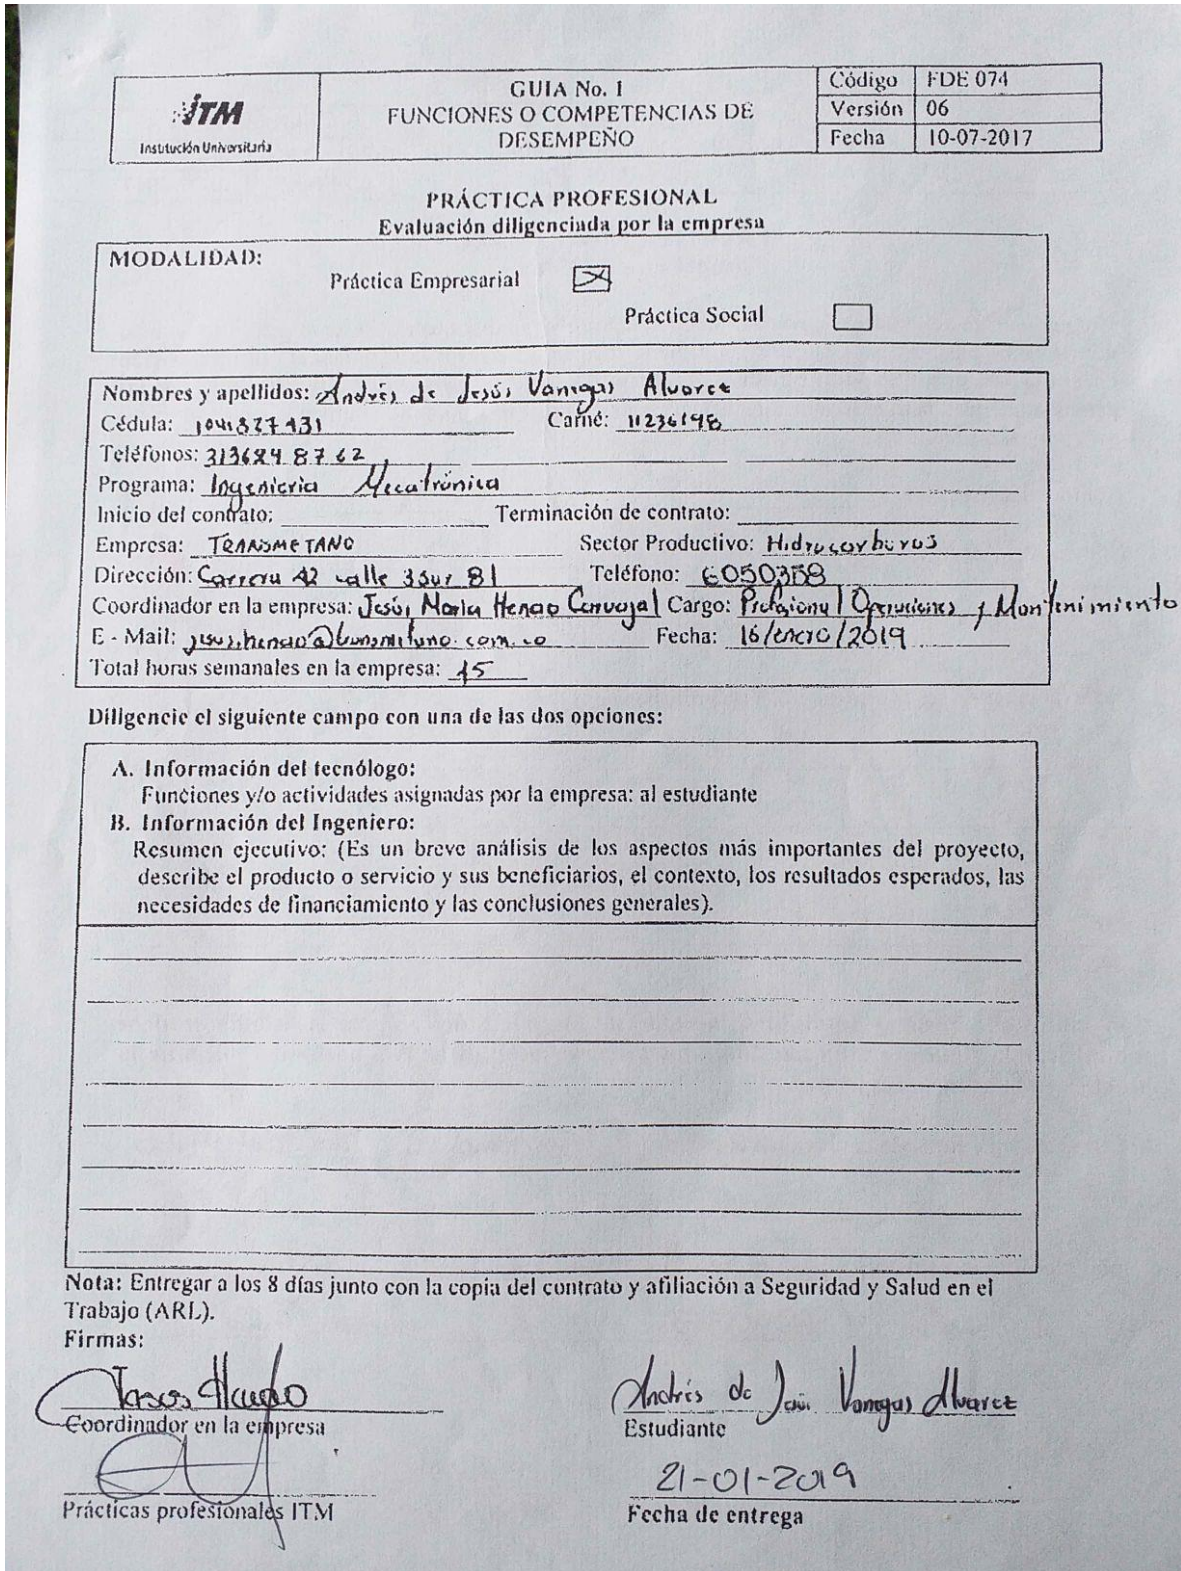 ITM
Institución Universitaria
GUIA No. 1
FUNCIONES O COMPETENCIAS DE
DESEMPEÑO
Código FDE 074
Versión 06
Fecha 10-07-2017
PRÁCTICA PROFESIONAL
Evaluación diligenciada por la empresa
MODALIDAD:
Práctica Empresarial
Práctica Social
Nombres y apellidos: Andrés de Jesús Vanegas Alvarez
Cédula: Carné: 11236198
Teléfonos: 3136848762
Programa: Ingeniería Mecatrónica
Inicio del contrato: Terminación de contrato:
Empresa: TRANSMETANO Sector Productivo: Hidrocarburos
Dirección: Carrera 42 calle 3sur 81 Teléfono: 6050358
Coordinador en la empresa: Jesús María Henao Carvajal Cargo: Profesional Operaciones y Mantenimiento
E - Mail: jesus.henao@transmetano.com.co Fecha: 16/enero/2019
Total horas semanales en la empresa:
Diligencie el siguiente campo con una de las dos opciones:
A. Información del tecnólogo:
Funciones y/o actividades asignadas por la empresa: al estudiante
B. Información del Ingeniero:
Resumen ejecutivo: (Es un breve análisis de los aspectos más importantes del proyecto,
describe el producto o servicio y sus beneficiarios, el contexto, los resultados esperados, las
necesidades de financiamiento y las conclusiones generales).
Nota: Entregar a los 8 días junto con la copia del contrato y afiliación a Seguridad y Salud en el
Trabajo (ARL).
Firmas:
Jesus Henao
Coordinador en la empresa
Andrés de Jesús Vanegas Alvarez
Estudiante
Prácticas profesionales ITM
21-01-2019
Fecha de entrega